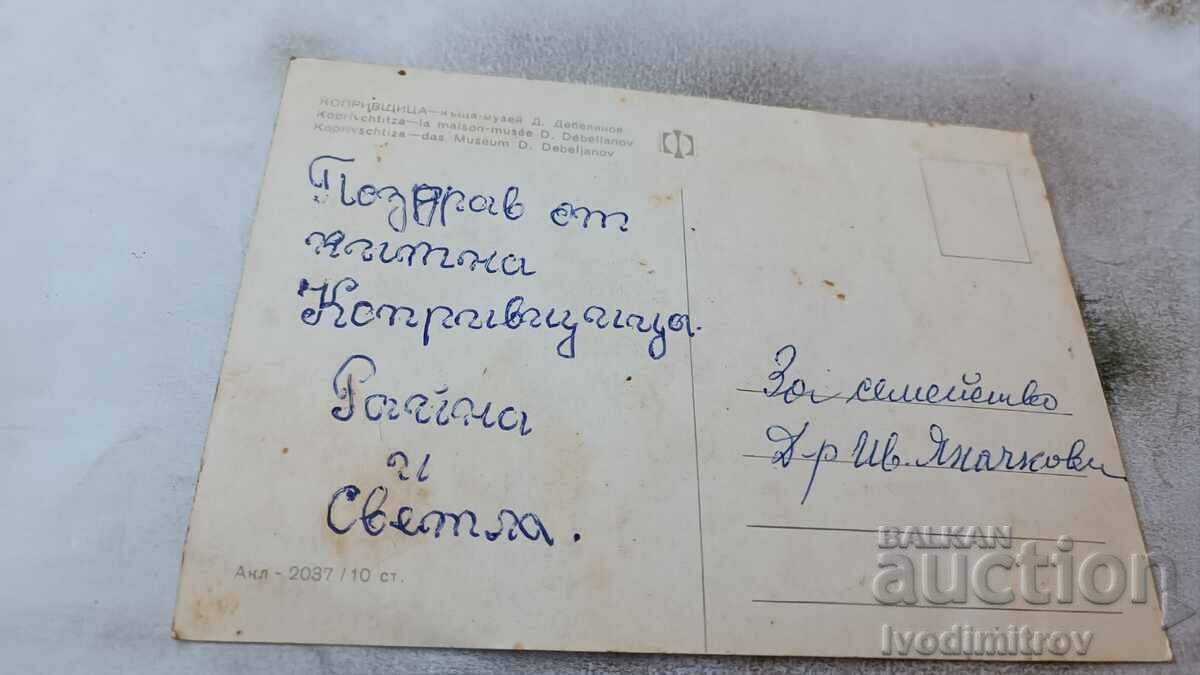 КОПРИВЩИЦА—къща-музей Д. Дебелянов
Koprivchtitza—la maison-musée D. Débélianov
Koprivschtiza—das Museum D. Debeljanov
Поздрав от
китна
Копривщица.
Райна
и
Светла.
Акл - 2037 / 10 ст.
За семейство
Д-р Ив. Яначкови
BALKAN
auction
Ivodimitrov